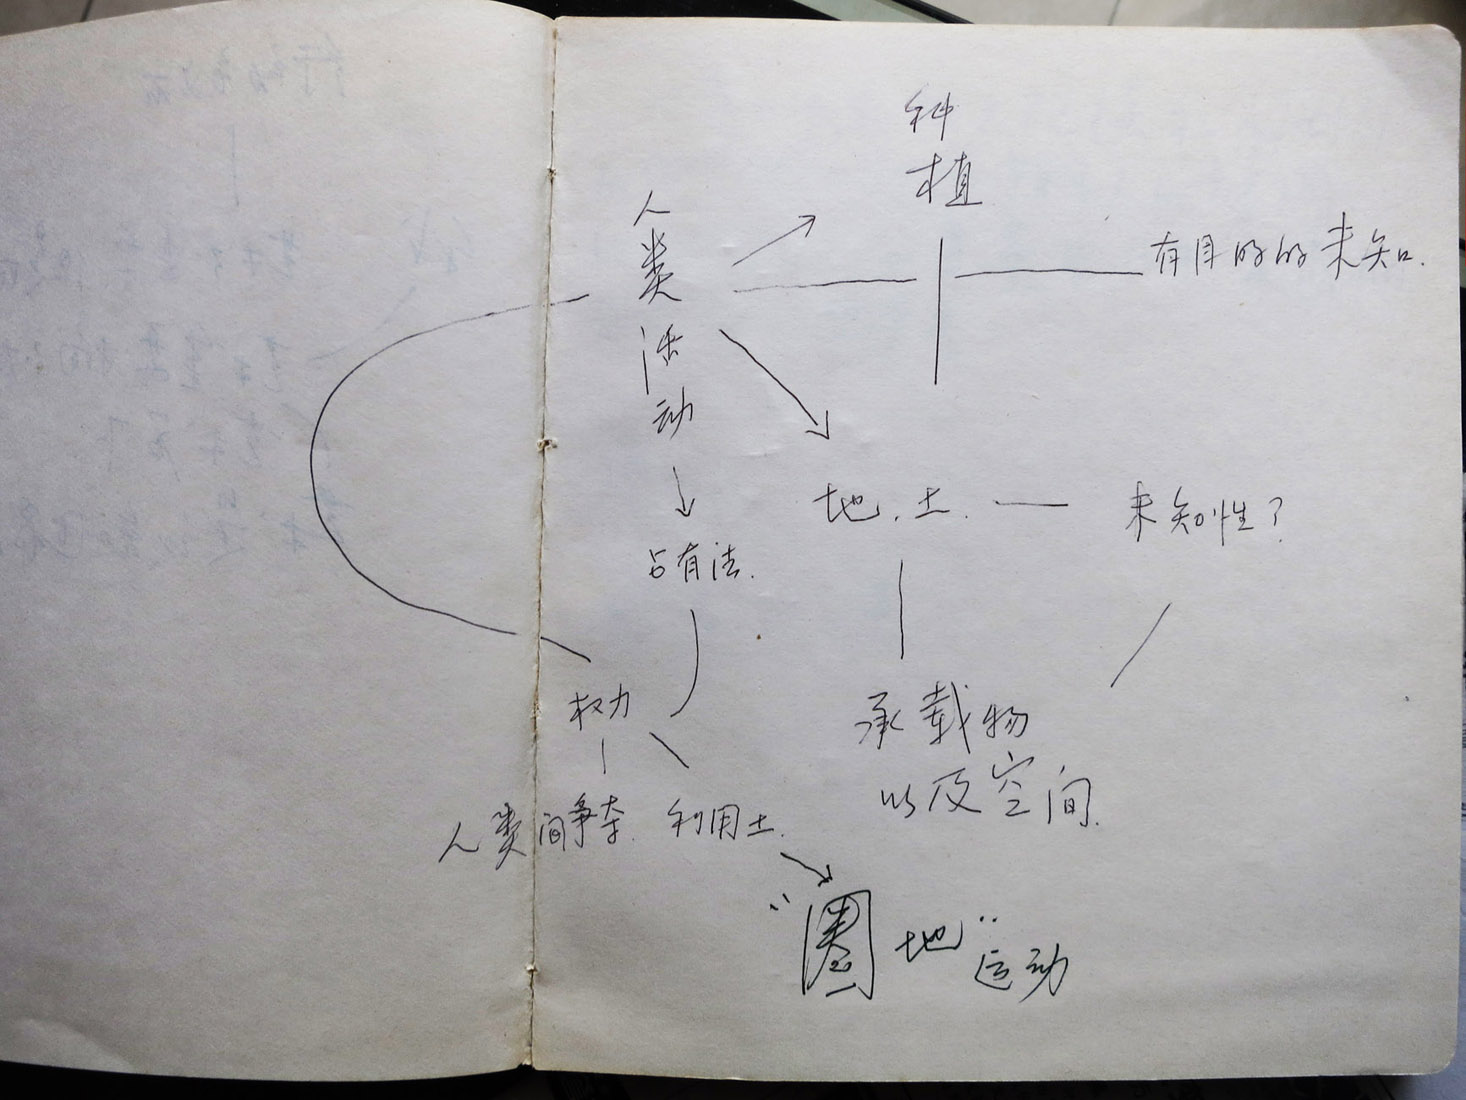 种
植
人
类
活
动
有目的的未知.
地.土.
未知性?
占有法.
权力
承载物
以及空间.
人类间争夺.
利用土.
“圈地”运动